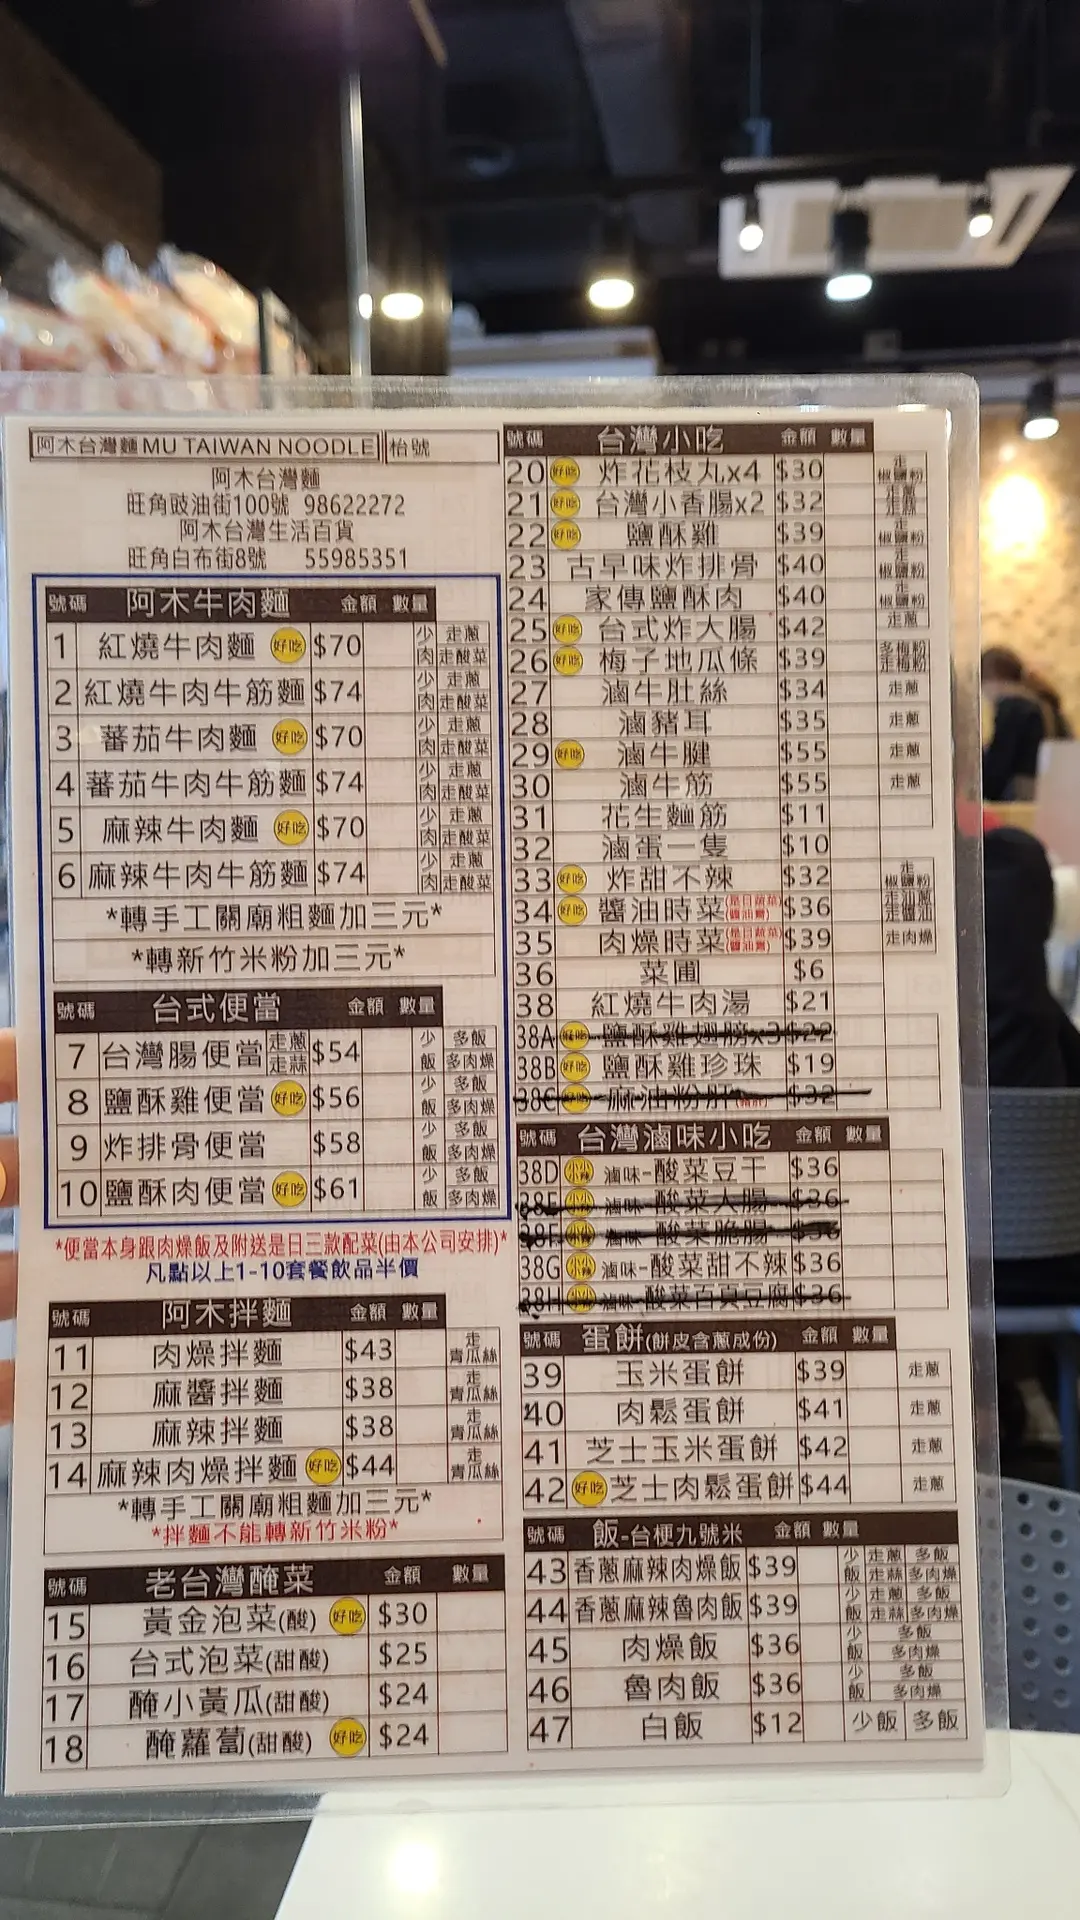 阿木台灣麵 MU TAIWAN NOODLE 枱號
阿木台灣麵
旺角豉油街100號 98622272
阿木台灣生活百貨
旺角白布街8號 55985351
號碼 阿木牛肉麵 金額 數量
1 紅燒牛肉麵 好吃 $70 少肉 走蔥 走酸菜
2 紅燒牛肉牛筋麵 $74 少肉 走蔥 走酸菜
3 蕃茄牛肉麵 好吃 $70 少肉 走蔥 走酸菜
4 蕃茄牛肉牛筋麵 $74 少肉 走蔥 走酸菜
5 麻辣牛肉麵 好吃 $70 少肉 走蔥 走酸菜
6 麻辣牛肉牛筋麵 $74 少肉 走蔥 走酸菜
*轉手工關廟粗麵加三元*
*轉新竹米粉加三元*
號碼 台式便當 金額 數量
7 台灣腸便當 走蔥 走蒜 $54 少飯 多飯 多肉燥
8 鹽酥雞便當 好吃 $56 少飯 多飯 多肉燥
9 炸排骨便當 $58 少飯 多飯 多肉燥
10 鹽酥肉便當 好吃 $61 少飯 多飯 多肉燥
*便當本身跟肉燥飯及附送是日三款配菜(由本公司安排)*
凡點以上1-10套餐飲品半價
號碼 阿木拌麵 金額 數量
11 肉燥拌麵 $43 走青瓜絲
12 麻醬拌麵 $38 走青瓜絲
13 麻辣拌麵 $38 走青瓜絲
14 麻辣肉燥拌麵 好吃 $44 走青瓜絲
*轉手工關廟粗麵加三元*
*拌麵不能轉新竹米粉*
號碼 老台灣醃菜 金額 數量
15 黃金泡菜(酸) 好吃 $30
16 台式泡菜(甜酸) $25
17 醃小黃瓜(甜酸) $24
18 醃蘿蔔(甜酸) 好吃 $24
號碼 台灣小吃 金額 數量
20 好吃 炸花枝丸x4 $30 走椒鹽粉
21 好吃 台灣小香腸x2 $32 走蔥 走蒜
22 好吃 鹽酥雞 $39 走椒鹽粉
23 古早味炸排骨 $40 走椒鹽粉
24 家傳鹽酥肉 $40 走椒鹽粉
25 好吃 台式炸大腸 $42 走蔥
26 好吃 梅子地瓜條 $39 多梅粉 走梅粉
27 滷牛肚絲 $34 走蔥
28 滷豬耳 $35 走蔥
29 好吃 滷牛腱 $55 走蔥
30 滷牛筋 $55 走蔥
31 花生麵筋 $11
32 滷蛋一隻 $10
33 好吃 炸甜不辣 $32 走椒鹽粉
34 好吃 醬油時菜(是日蔬菜) $36 走油蔥 走醬油
35 肉燥時菜(是日蔬菜) $39 走肉燥
36 菜圃 $6
38 紅燒牛肉湯 $21
38A 好吃 鹽酥雞翅膀x3 $22
38B 好吃 鹽酥雞珍珠 $19
38C 好吃 麻油粉肝 $32
號碼 台灣滷味小吃 金額 數量
38D 小辣 滷味-酸菜豆干 $36
38E 小辣 滷味-酸菜大腸 $36
38F 小辣 滷味-酸菜脆腸 $36
38G 小辣 滷味-酸菜甜不辣 $36
38H 小辣 滷味-酸菜百頁豆腐 $36
號碼 蛋餅(餅皮含蔥成份) 金額 數量
39 玉米蛋餅 $39 走蔥
40 肉鬆蛋餅 $41 走蔥
41 芝士玉米蛋餅 $42 走蔥
42 好吃 芝士肉鬆蛋餅 $44 走蔥
號碼 飯-台梗九號米 金額 數量
43 香蔥麻辣肉燥飯 $39 少飯 走蔥 多飯 走蒜 多肉燥
44 香蔥麻辣魯肉飯 $39 少飯 走蔥 多飯 走蒜 多肉燥
45 肉燥飯 $36 少飯 多飯 多肉燥
46 魯肉飯 $36 少飯 多飯 多肉燥
47 白飯 $12 少飯 多飯